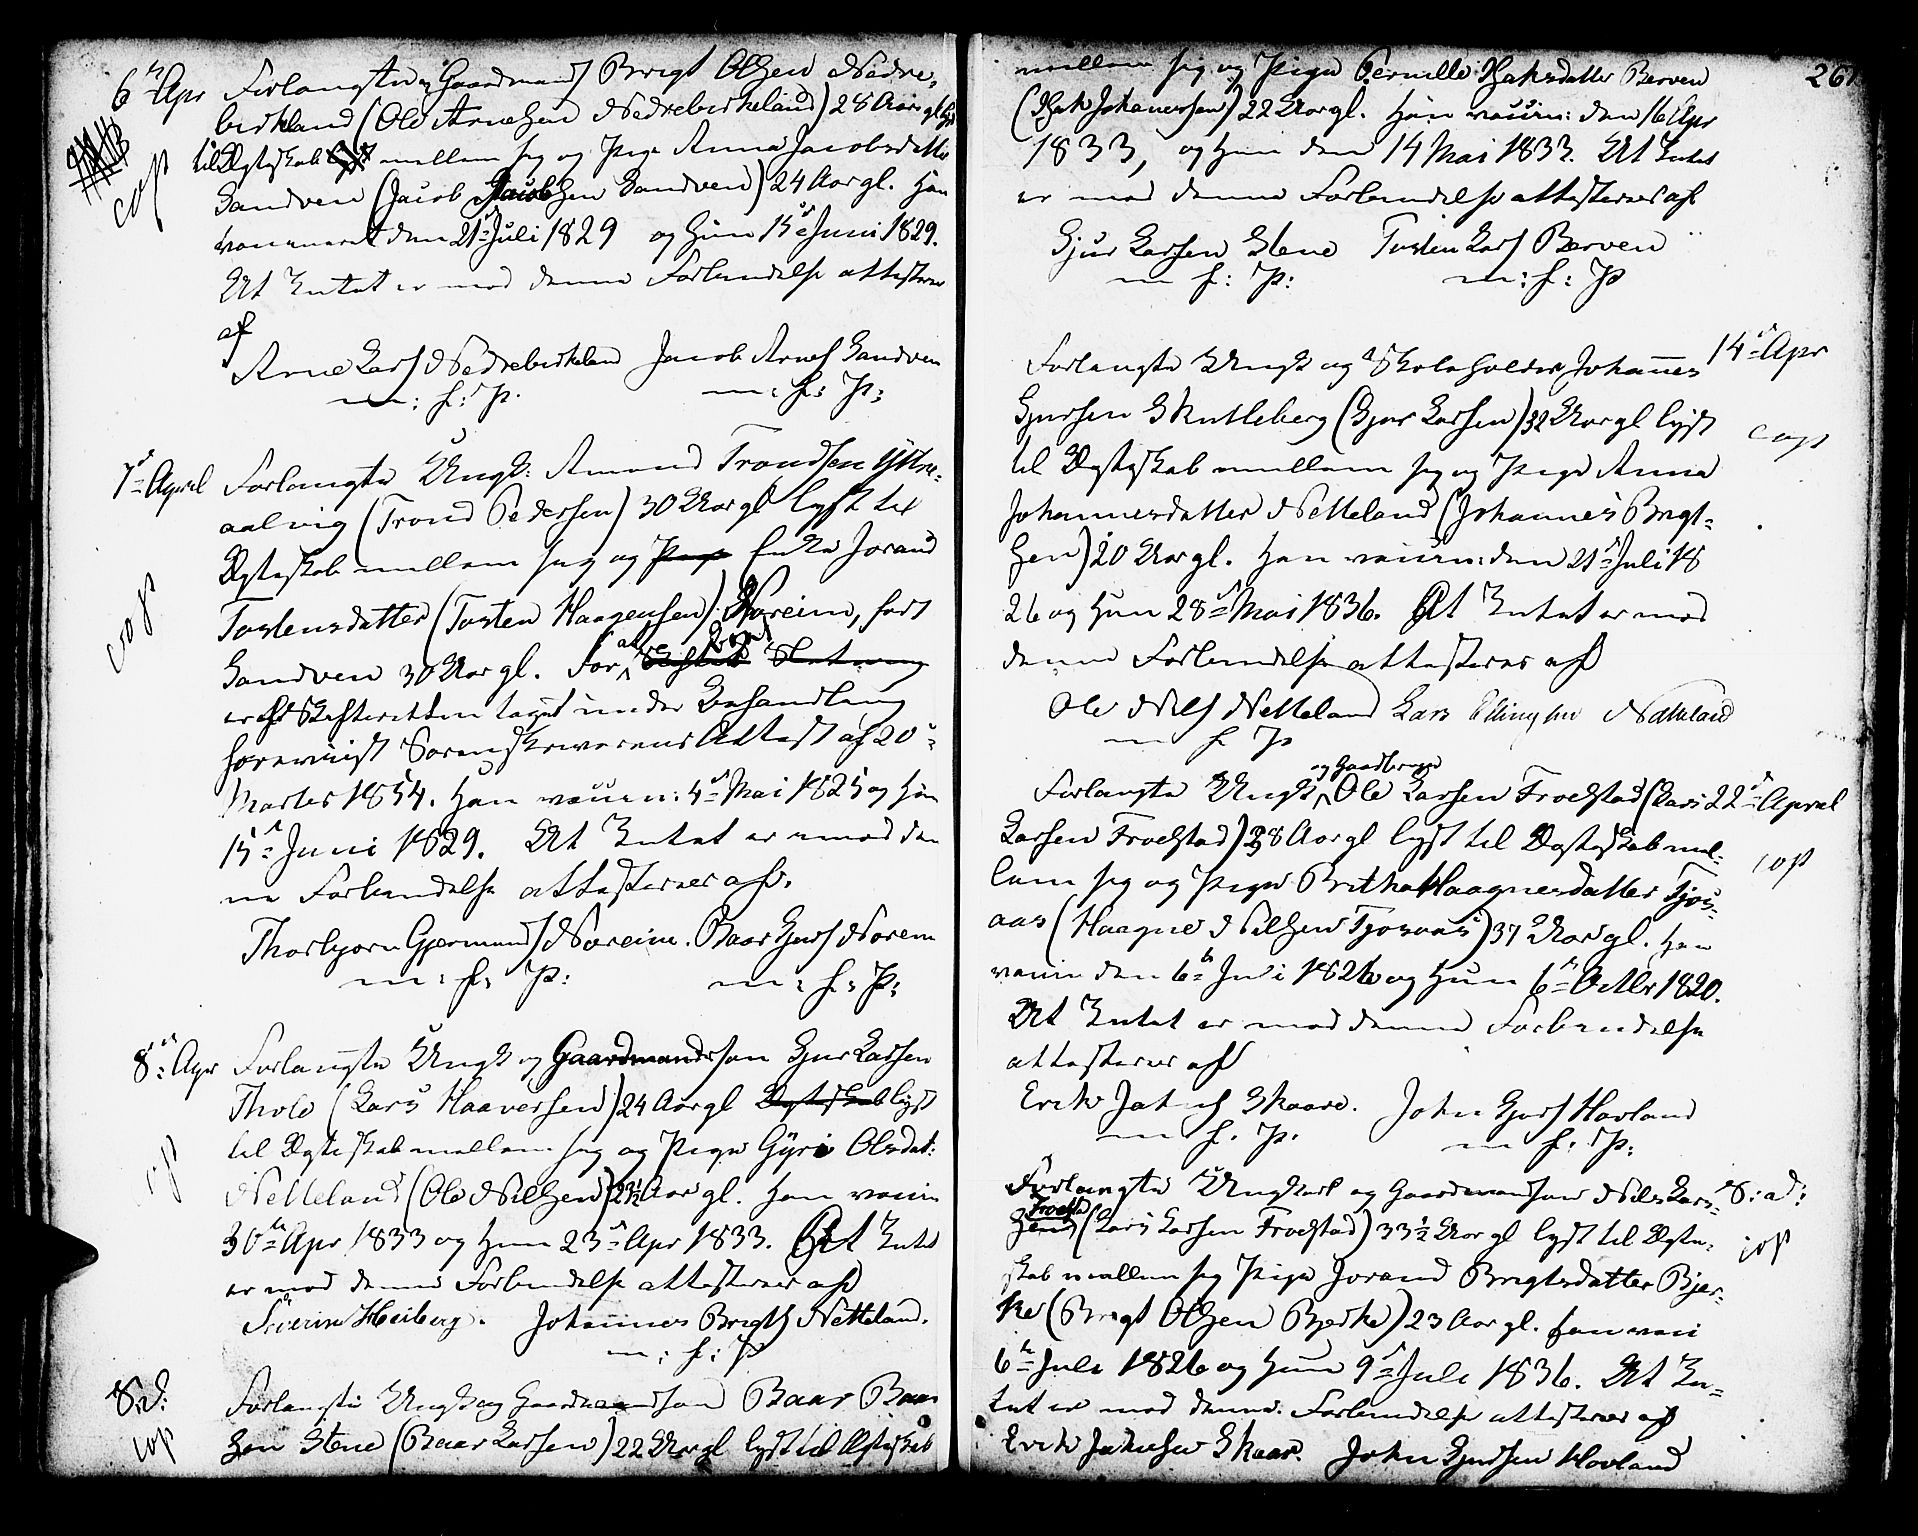 6te Apr Forlangte Gaardmand Brigt Olsen Nedre-
birkeland (Ole Arnesen Nedrebirkeland) 28 Aar gl lyst
til Ægteskab mellem sig og Pige Anna Jacobsdatter
cop
Sandven (Jacob Jacobsen Sandven) 24 Aar gl. Han
vaccineret den 21de Juli 1829 og Hun 15de Juni 1829.
At Intet er mod denne Forbindelse attesterer
af
Arne Lars Nedrebirkeland Jacob Arnes Sandven
m: f: P. m: f: P:
7de April Forlangte Ungk: Amund Trondsen Ytre-
aalvig (Trond Pedersen) 30 Aar gl lyst til
Ægteskab mellem sig og Pige Enke Jorand
cop
Torstensdatter (Torsten Haagensen) Noreim, født
Sandven 30 Aar gl. For at
er af Skifteretten taget under Behandling
foreviist Sorenskriverens Attest af 20de
Marts 1854. Han vaccin: 4de Mai 1825 og Hun
15de Juni 1829. At Intet er imod den
ne Forbindelse attesteres af.
Thorbjørn Gjermunds Noreim. Baar Gjers Noreim
m: f: P: m: f: P:
8de Apr Forlangte Ungk og Gaardmandssøn Gjur Larsen
Thole (Lars Haaversen) 24 Aar gl Ægteskab lyst
til Ægteskab mellem sig og Pige Gyri Olsdat:
cop
Netteland (Ole Nilsen) 21½ Aar gl. Han vaccin
30te Apr 1833 og Hun 23de Apr 1833. At Intet
er mod denne Forbindelse attesterer af
Siverin Heiberg. Johannes Brigts Netteland.
m: f: P
S:D: Forlangte Ungk og Gaardmandssøn Baar Baar
cop
sen Stene (Baar Larsen) 22 Aar gl lyst til Ægteskab
261
mellem sig og Pige Pernille Jaksdatter Berven
(Jak Johannessen) 22 Aar gl. Han vaccin: den 16 Apr
1833, og Hun den 14 Mai 1833. At Intet
er mod denne Forbindelse attesteres af
Gjur Larsen Stene Torsten Lars Berven
m f: P: m: f: P
Forlangte Ungk og Skoleholder Johannes 14de Apr
Gjursen Skutleberg (Gjur Larsen) 32 Aar gl lyst
cop
til Ægteskab mellem sig og Pige Anna
Johannesdatter Netteland (Johannes Brigt-
sen) 20 Aar gl. Han vaccin: den 21de Juli 18
26 og Hun 28de Mai 1836. At Intet er mod
denne Forbindelse attesteres af
Ole Nils Netteland Lars Ellingsen Netteland
m f P
og Gaardbruger
Forlangte Ungk Ole Larsen Froestad (Lars 22de April
Larsen Froestad) 28 Aar gl lyst til Ægteskab mel-
cop
lem sig og Pige Britha Haagnesdatter Tjos-
aas (Haagne Nilsen Tjosaas) 37 Aar gl. Han
vaccin den 6te Juli 1826 og Hun 6te Octbr 1820.
At Intet er mod denne Forbindelse
attesterer af
Erik Jakobs Skaare. John Gjers Hovland
m f. P. m f: P:
Forlangte Ungkarl og Gaardmandssøn Nils Lars- S:D:
Froestad
sen (Lars Larsen Froestad) 33½ Aar gl lyst til Ægte-
cop
skab mellem sig Pige Jorand Brigtsdatter Bjer-
ke (Brigt Olsen Bjerke) 23 Aar gl. han vacci
6te Juli 1826 og Hun 9de Juli 1836. At In-
tet er mod denne Forbindelse attesteres af
Erik Jakobsen Skaar. John Gjursen Hovland